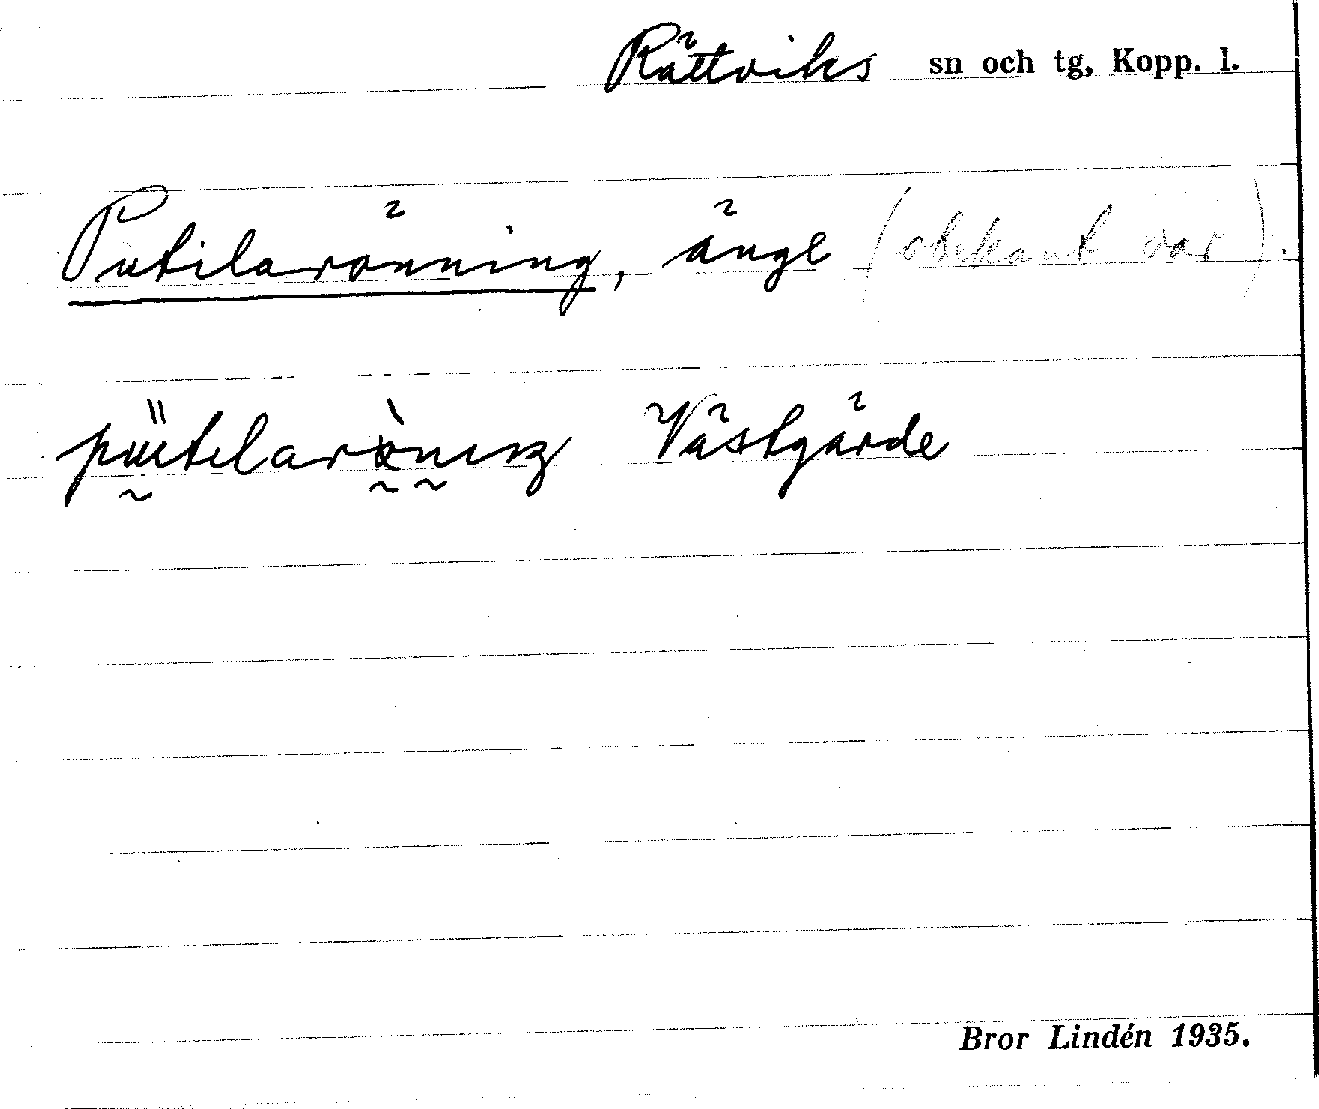 Rättviks sn och tg, Kopp. l.
Putilarönning, änge (obekant var).
Västgärde
Bror Lindén 1935.